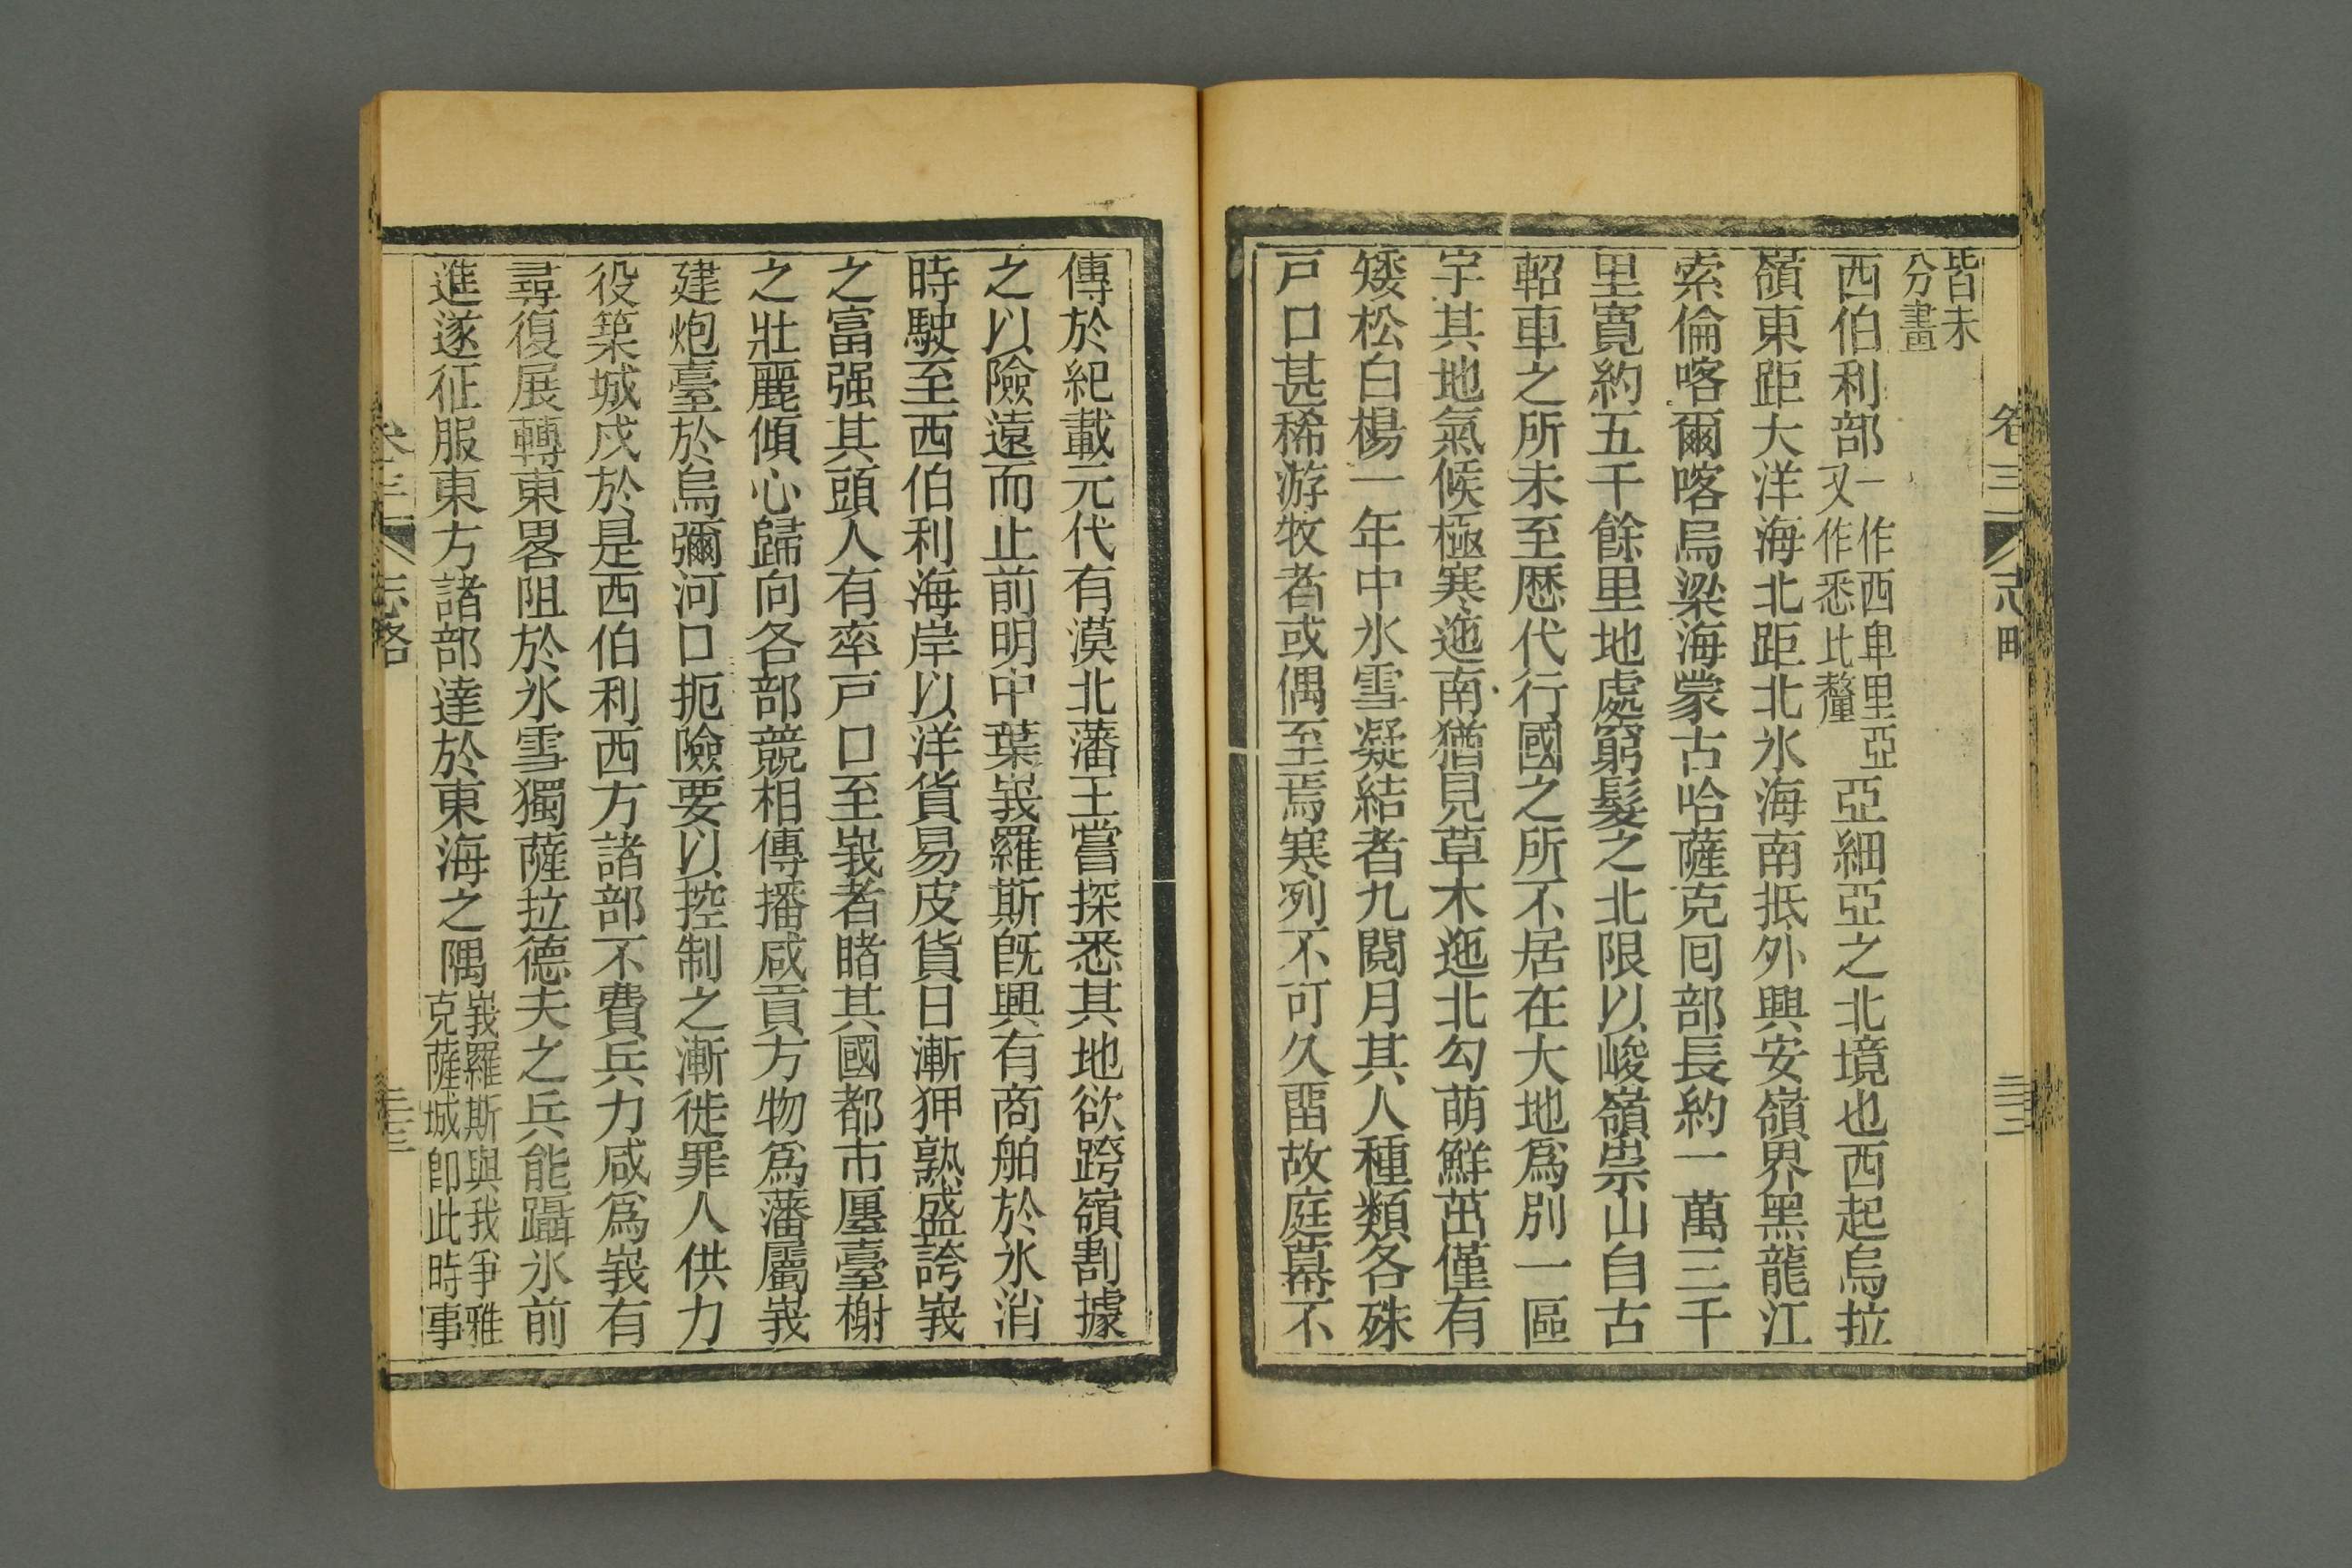 皆未
分畫
西伯利部一作西卑里亞
又作悉比釐亞細亞之北境也西起烏拉
嶺東距大洋海北距北氷海南抵外興安嶺界黑龍江
索倫喀爾喀烏梁海蒙古哈薩克回部長約一萬三千
里寬約五千餘里地處窮髮之北限以峻嶺崇山自古
軺車之所未至歷代行國之所不居在大地爲別一區
宇其地氣候極寒迤南猶見草木迤北勾萌鮮茁僅有
矮松白楊一年中氷雪凝結者九閱月其人種類各殊
戸口甚稀游牧者或偶至焉寒冽不可久畱故庭幕不
傳於紀載元代有漠北藩王嘗探悉其地欲跨嶺割據
之以險遠而止前明中葉峩羅斯旣興有商舶於氷消
時駛至西伯利海岸以洋貨易皮貨日漸狎熟盛誇峩
之富强其頭人有率戸口至峩者睹其國都市廛臺榭
之壯麗傾心歸向各部競相傳播咸貢方物爲藩屬峩
建炮臺於烏彌河口扼險要以控制之漸徙罪人供力
役築城戍於是西伯利西方諸部不費兵力咸爲峩有
尋復展轉東畧阻於氷雪獨薩拉德夫之兵能躡氷前
進遂征服東方諸部達於東海之隅峩羅斯與我爭雅
克薩城卽此時事
卷三
志略